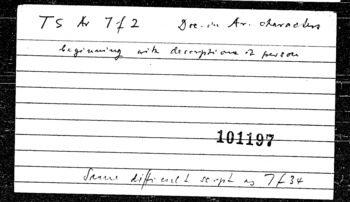 TS Ar 7f2 Doc. in Ar. characters
beginning with description of person
101197
Same difficult script as 7f34